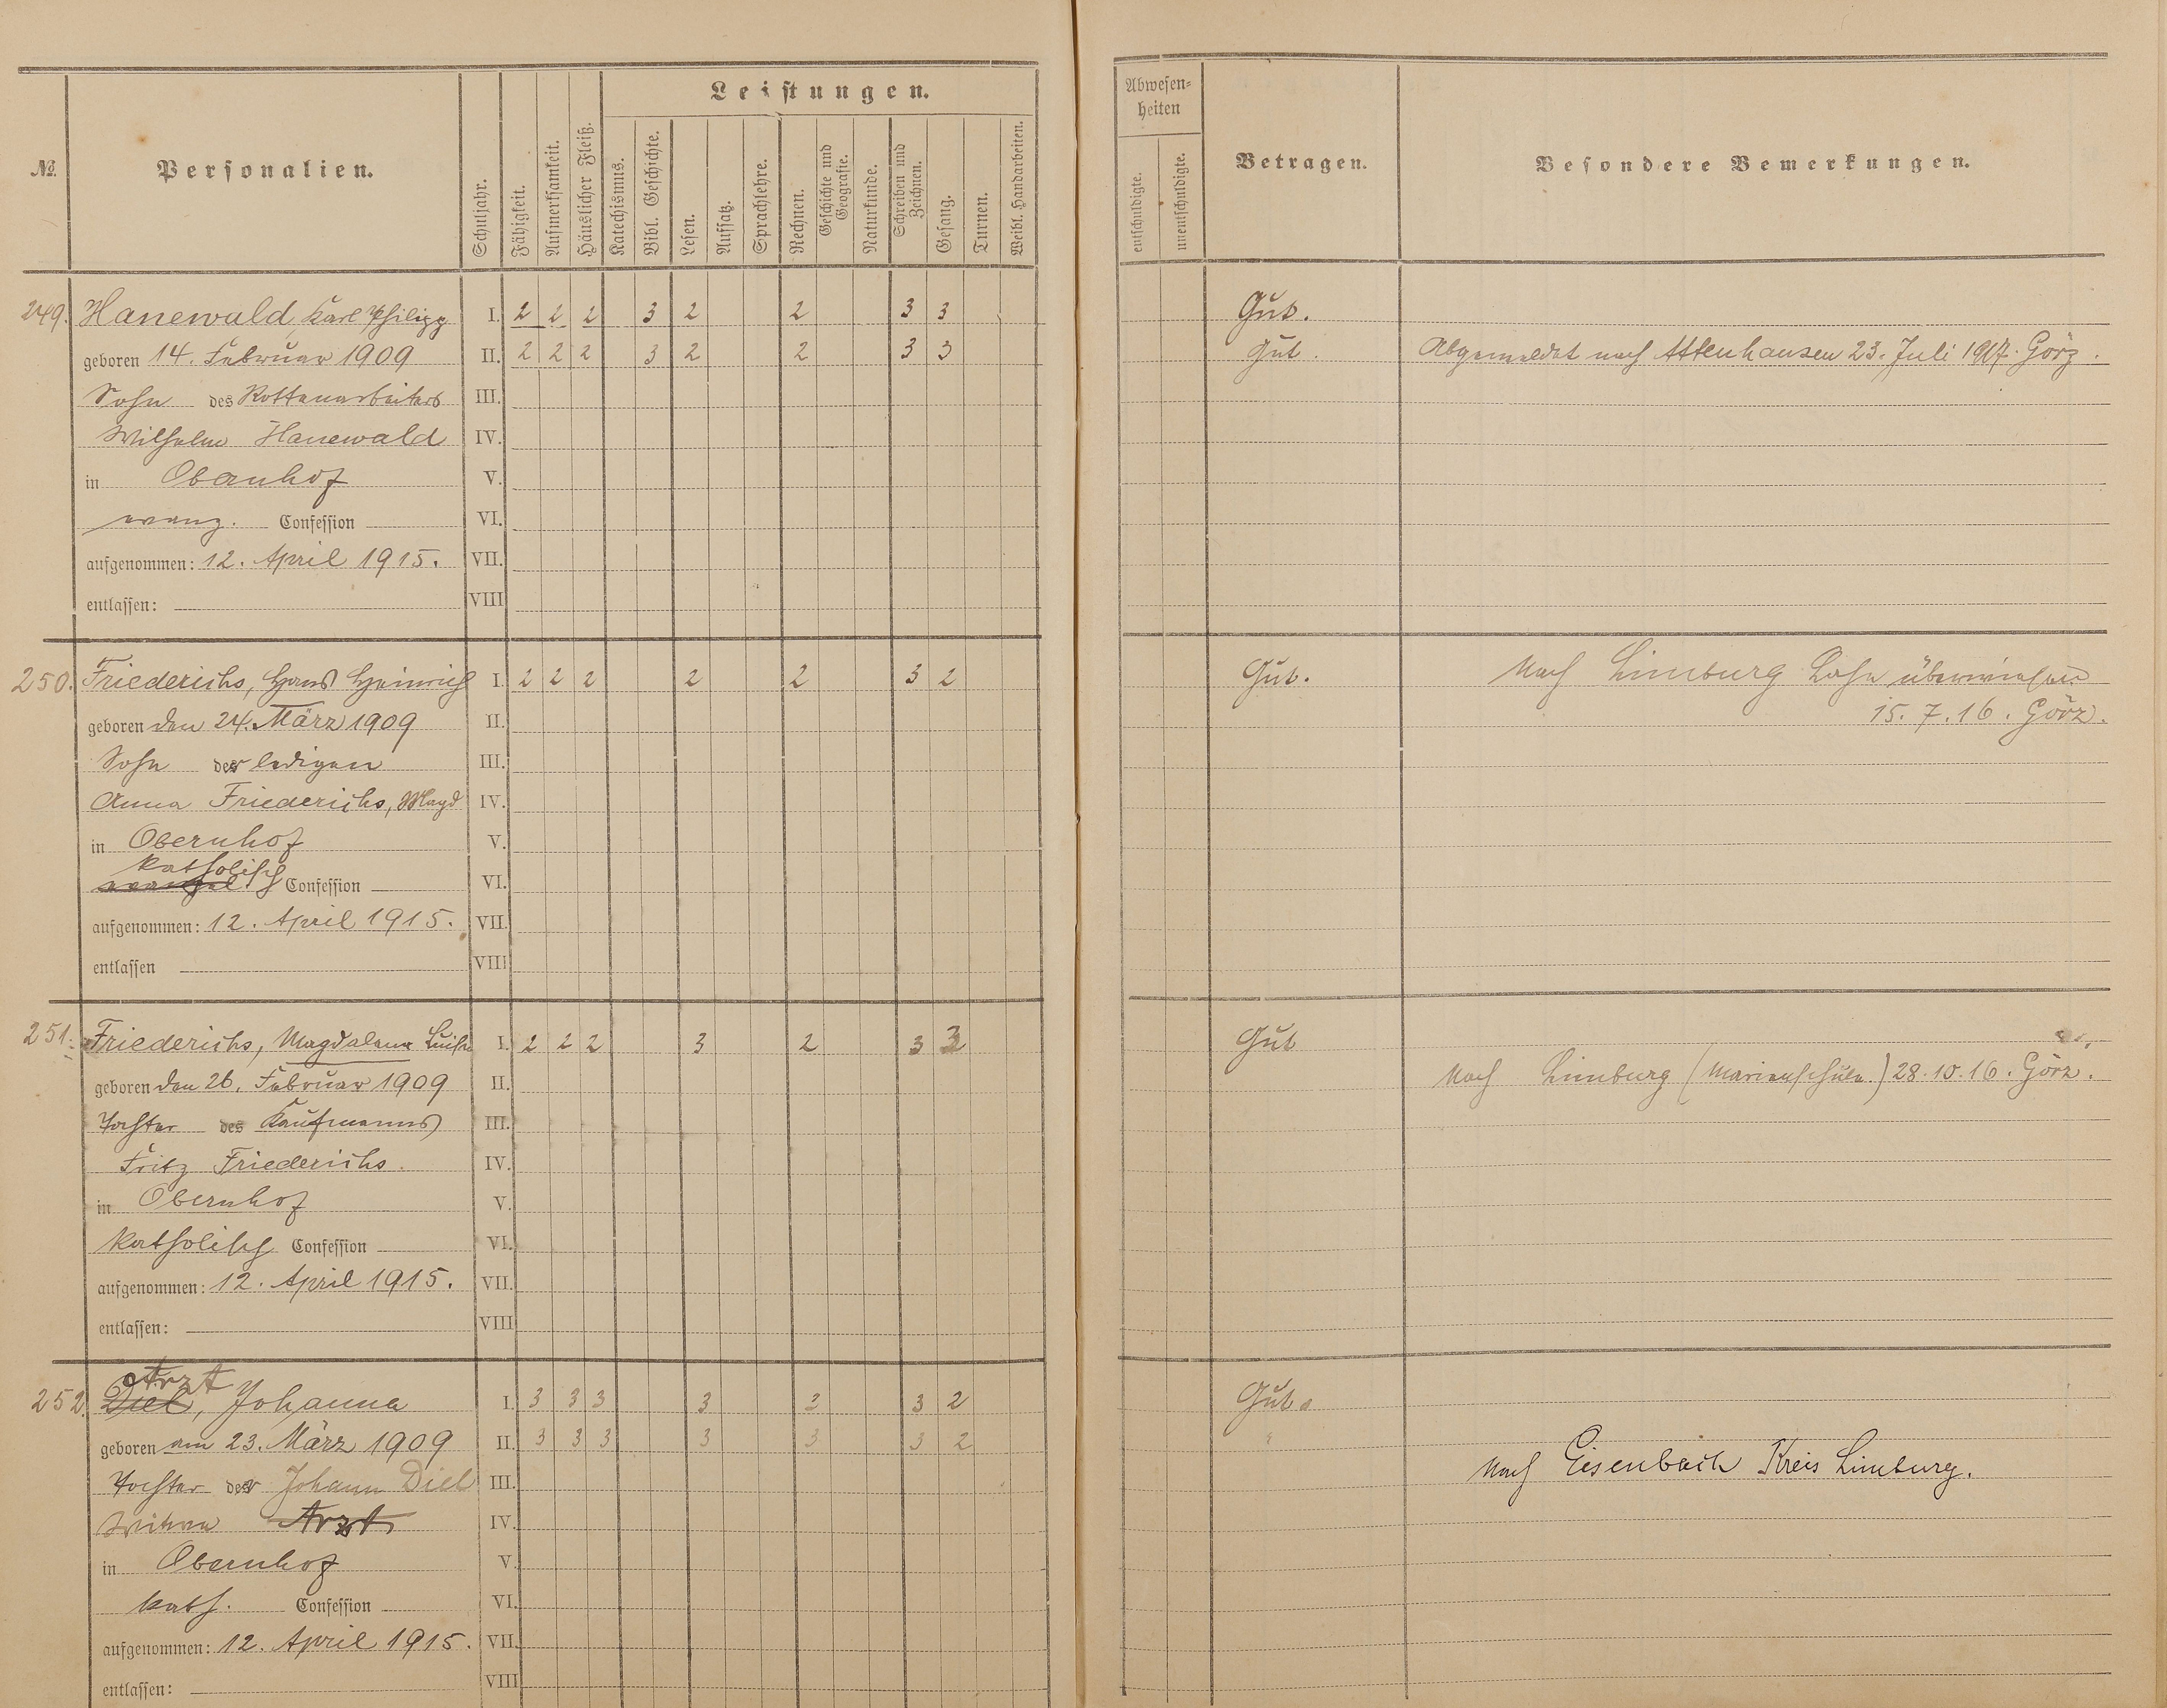 Leistungen.
Abwesenheiten
№.
Personalien.
Schuljahr.
Fähigkeit.
Aufmerksamkeit.
Häuslicher Fleiß.
Katechismus.
Bibl. Geschichte.
Lesen.
Aufsatz.
Sprachlehre.
Rechnen.
Geschichte und Geografie.
Naturkunde.
Schreiben und Zeichnen.
Gesang.
Turnen.
Weibl. Handarbeiten.
entschuldigte.
unentschuldigte.
Betragen.
Besondere Bemerkungen.
249. Hanewald, Karl Philipp I. 2 2 2 3 2 2 3 3 Gut.
geboren 14. Februar 1909 II. 2 2 2 3 2 2 3 3 Gut. Abgemeldet nach Attenhausen 23. Juli 1917. Görz.
Sohn des Rottenarbeiters III.
Wilhelm Hanewald IV.
in Obernhof V.
evang. Confession VI.
aufgenommen: 12. April 1915. VII.
entlassen: VIII
250. Friederichs, Hans Heinrich I. 2 2 2 2 2 3 2 Gut. Nach Limburg Lahn überwiesen
geboren den 24. März 1909 II. 15. 7. 16. Görz.
Sohn der ledigen III.
Anna Friederichs, Magd IV.
in Obernhof V.
katholisch
evangel. Confession VI.
aufgenommen: 12. April 1915. VII.
entlassen VIII
251. Friederichs, Magdalena Luise I. 2 2 2 3 2 3 3 Gut
geboren den 26. Februar 1909 II. Nach Limburg (Marienschule.) 28. 10. 16. Görz.
Tochter des Kaufmanns III.
Fritz Friederichs. IV.
in Obernhof V.
katholisch Confession VI.
aufgenommen: 12. April 1915. VII.
entlassen: VIII
Arzt
252. Diel, Johanna I. 3 3 3 3 3 3 2 Gut.
geboren am 23. März 1909 II. 3 3 3 3 3 3 2 "
Nach Eisenbach Kreis Limburg.
Tochter der Johann Diel III.
Witwe Arzt IV.
in Obernhof V.
kath. Confession VI.
aufgenommen: 12. April 1915. VII.
entlassen: VIII